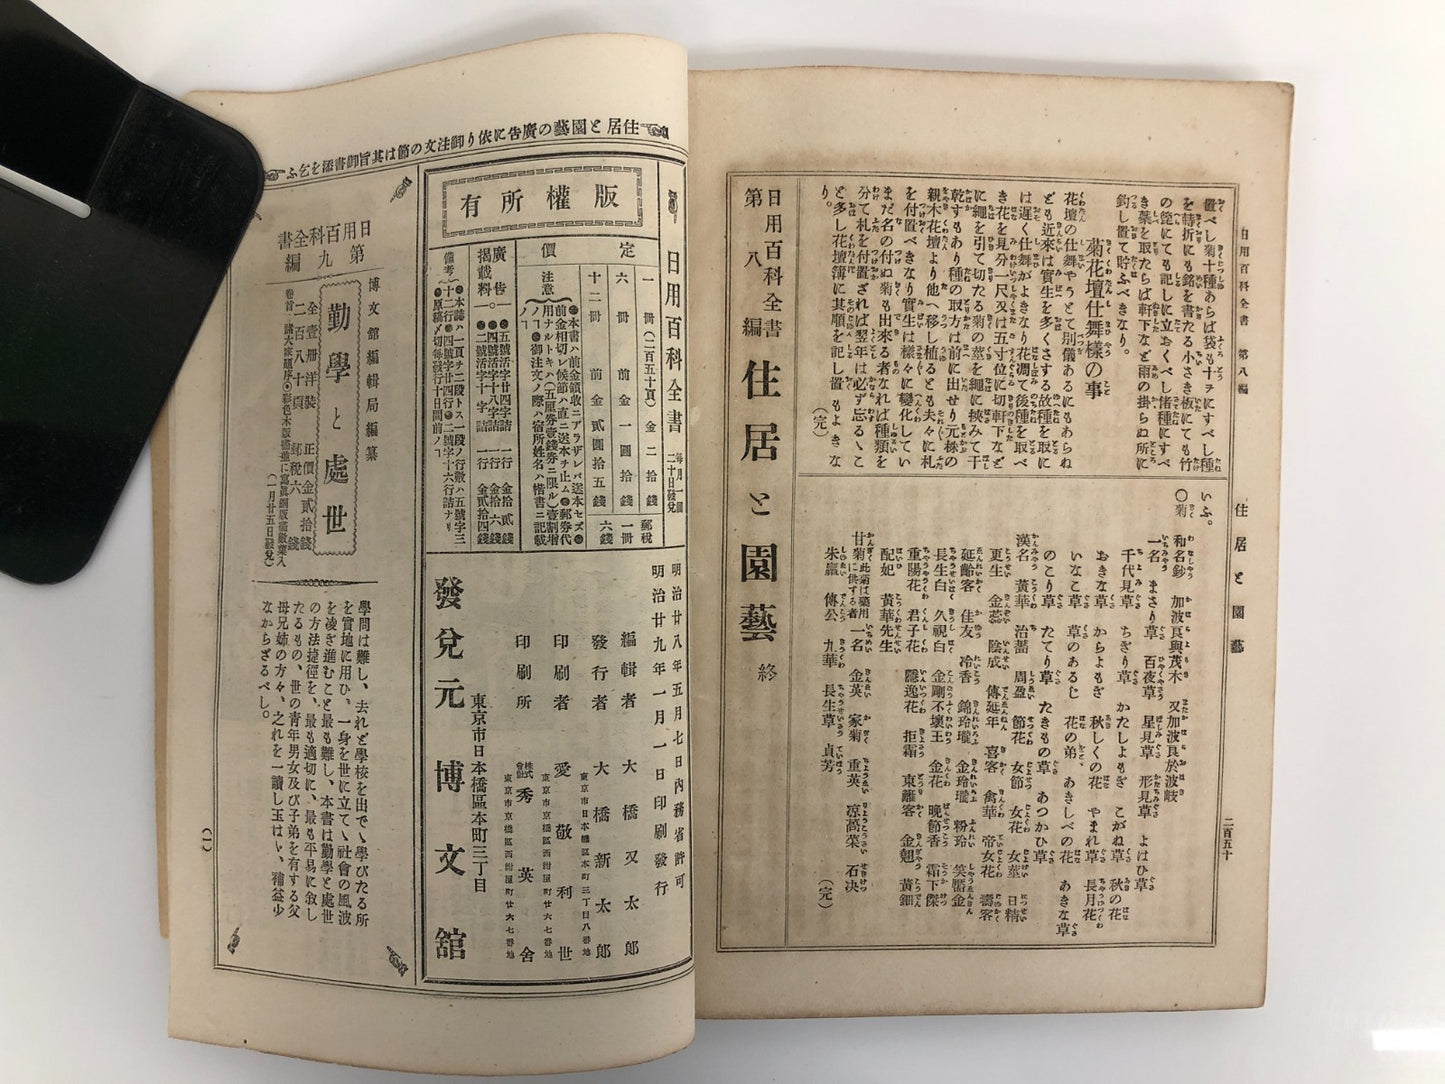 日用百科全書　第八編
住居と園藝
二百五十
置べし菊十種あらば袋も十ヲにすべし種
を蒔折にも銘を書たる小さき板にても竹
の箆にても記しに立おくべし偖種にすべ
き蕚を取たらば軒下など雨の掛らぬ所に
釣し置て貯ふべきなり。
菊花壇仕舞樣の事
花壇の仕舞やうとて別儀あるにもあらね
ども近來は實生を多くさする故種を取に
は遲く仕舞がよきなり花凋て後種を取べ
き花を見分一尺又は五寸位に切軒下など
に繩を引て切たる菊の莖を繩に挾みて干
乾すもあり種の取方は前に出せり元株の
親木花壇より他へ移し植るとも夫々に札
を付置べきなり實生は樣々に變化してい
まだ名の付ぬ菊も出來る者なれば種類を
分て札を付置ざれば翌年は必ず忘るゝこ
と多し花壇簿に其順を記し置もよきな
り。
（完）
いふ。
〇菊
和名鈔　加波良與茂木　又加波良於波岐
一名　まさり草　百夜草　星見草　形見草　よはひ草
千代見草　ちぎり草　かたしよもぎ　こがね草　秋の花
おきな草　からよもぎ　秋しくの花　やまれ草　長月花
いなこ草　草のあるじ　花の弟　あきしべの花　あきな草
のこり草　たてり草　たきもの草　あつかひ草
漢名　黄華　治蘠　周盈　節花　女節　女花　女莖　日精
更生　金蕊　陰成　傳延年　喜客　禽華　帝女花　壽客
延齡客　佳友　冷香　錦玲瓏　金玲瓏　粉玲　笑靨金
長生白　久視白　金剛不壞王　金花　晩節香　霜下傑
重陽花　君子花　隱逸花　拒霜　東籬客　金翹　黃鈿
配妃　黄華先生
甘菊此菊は藥用に供する者　一名　金英　家菊　重英　凉高菜　石决
朱嬴　傳公　九華　長生草　貞芳
（完）
日用百科全書
第八編
住居と園藝　終
住居と園藝の廣告に依り御注文の節は其旨御書添を乞ふ
日用百科全書　毎月一回二十日發兌
版權所有
定價
一冊（二百五十頁）金二拾錢
六冊　前金一圓拾五錢
十二冊　前金貳圓拾五錢
郵稅一冊六錢
注意
●本書ハ前金領收ニアラザレバ送本セズ●
前金相切レ候節ハ直ニ送本ヲ止ム●郵券代
用ナルトキハ（五厘券壹錢券ニ限ル）壹割增
ノヿ●御注文ノ際ハ宿所姓名ハ楷書ニ記載
ノヿ
廣告揭載料。
一●五號活字廿四字詰　一行　金拾貳錢
●四號活字十八字詰　一行　金拾六錢
●二號活字十字詰　一行　金貳拾四錢
備考
●本誌ハ一頁チ二段トス一段ノ行數ハ五號字三
十二行●四號字十四行●二號字十六行詰ナリ
●原稿〆切每發行十日間前ノヿ
明治廿八年五月七日內務省許可
明治廿九年一月一日印刷發行
編輯者　大橋又太郎
發行者　大橋新太郎
東京市日本橋區本町三丁目八番地
印刷者　愛敬利世
東京市京橋區西紺屋町廿六七番地
印刷所　株式會社秀英舍
東京市京橋區西紺屋町廿六七番地
東京市日本橋區本町三丁目
發兌元　博文舘
日用百科全書
第九編
博文舘編輯局編纂
勤學と處世
全壹冊洋裝　正價金貳拾錢
二百八十頁　郵稅六錢
（一月廿五日發兌）
學問は難し、去れど學校を出でゝ學びたる所
を實地に用ひ、一身を世に立てゝ社會の風波
を凌ぎ進むこと最も難し、本書は勤學と處世
の方法捷徑を、最も適切に、最も平易に敍し
たるもの、世の青年男女及び子弟を有する父
母兄姉の方々、之れを一讀し玉はゝ、補益少
なからざるべし。
（一）